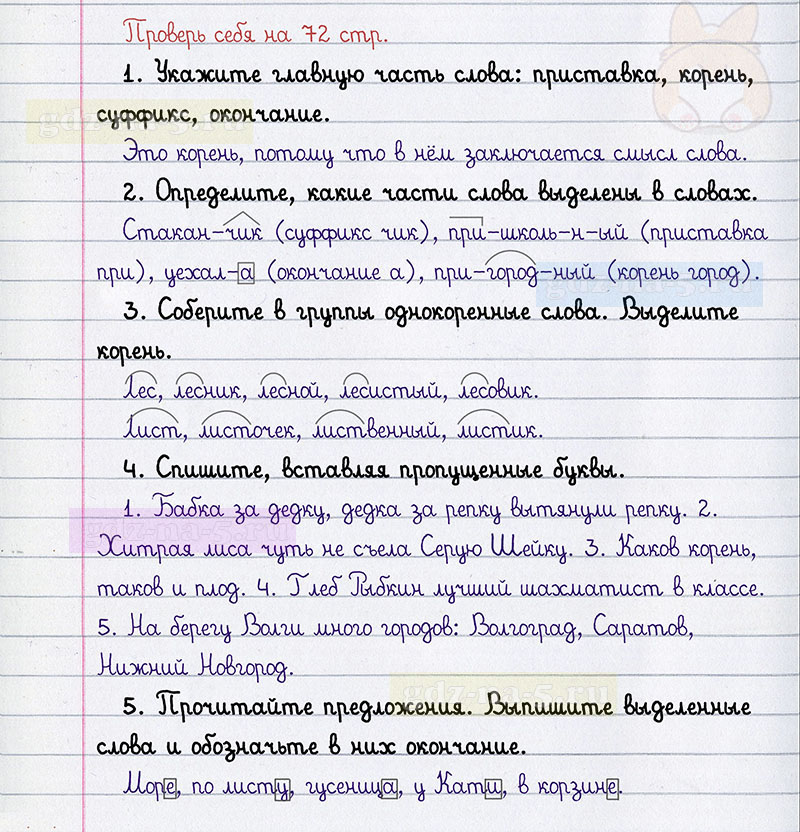 Проверь себя на 72 стр.
1. Укажите главную часть слова: приставка, корень,
суффикс, окончание.
Это корень, потому что в нём заключается смысл слова.
2. Определите, какие части слова выделены в словах.
Стакан-чик (суффикс чик), при-школь-н-ый (приставка
при), уехал-а (окончание а), при-город-ный (корень город).
3. Соберите в группы однокоренные слова. Выделите
корень.
Лес, лесник, лесной, лесистый, лесовик.
Лист, листочек, лиственный, листик.
4. Спишите, вставляя пропущенные буквы.
1. Бабка за дедку, дедка за репку вытянули репку. 2.
Хитрая лиса чуть не съела Серую Шейку. 3. Каков корень,
таков и плод. 4. Глеб Рыбкин лучший шахматист в классе.
5. На берегу Волги много городов: Волгоград, Саратов,
Нижний Новгород.
5. Прочитайте предложения. Выпишите выделенные
слова и обозначьте в них окончание.
Море, по листу, гусеница, у Кати, в корзине.